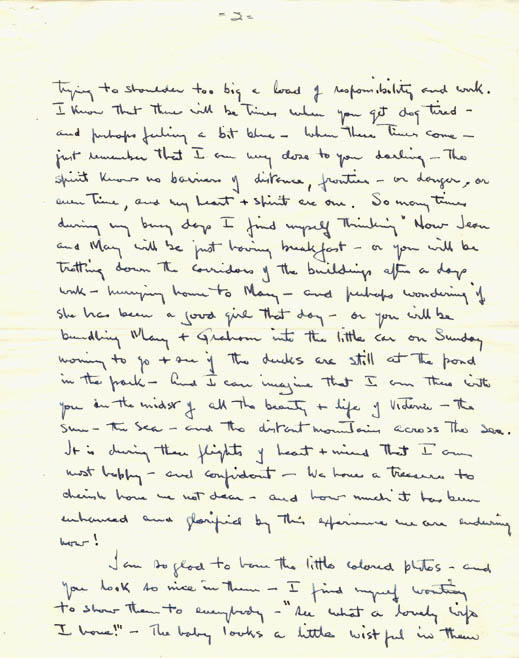 - 2 -
trying to shoulder too big a load of responsibility and work.
I know that there will be times when you get dog tired -
and perhaps feeling a bit blue - When these times come -
just remember that I am very close to you darling - The
spirit knows no barriers of distance, frontier - or danger, or
even time, and my heart + spirit are one. So many times
during my busy days I find myself thinking "Now Jean
and Mary will be just having breakfast - or you will be
trotting down the corridors of the buildings after a days
work - hurrying home to Mary - and perhaps wondering if
she has been a good girl that day - or you will be
bundling Mary + Graham into the little car on Sunday
morning to go + see if the ducks are still at the pond
in the park - And I can imagine that I am there with
you in the midst of all the beauty + life of Victoria - the
sun - the sea - and the distant mountains across the sea.
It is during these flights of heart + mind that I am
most happy - and confident - We have a treasure to
cherish have we not dear - and how much it has been
enhanced and glorified by this experience we are enduring
now!
I am so glad to have the little colored photos - and
you look so nice in them - I find myself wanting
to show them to everybody - "see what a lovely wife
I have!" - The baby looks a little wistful in them